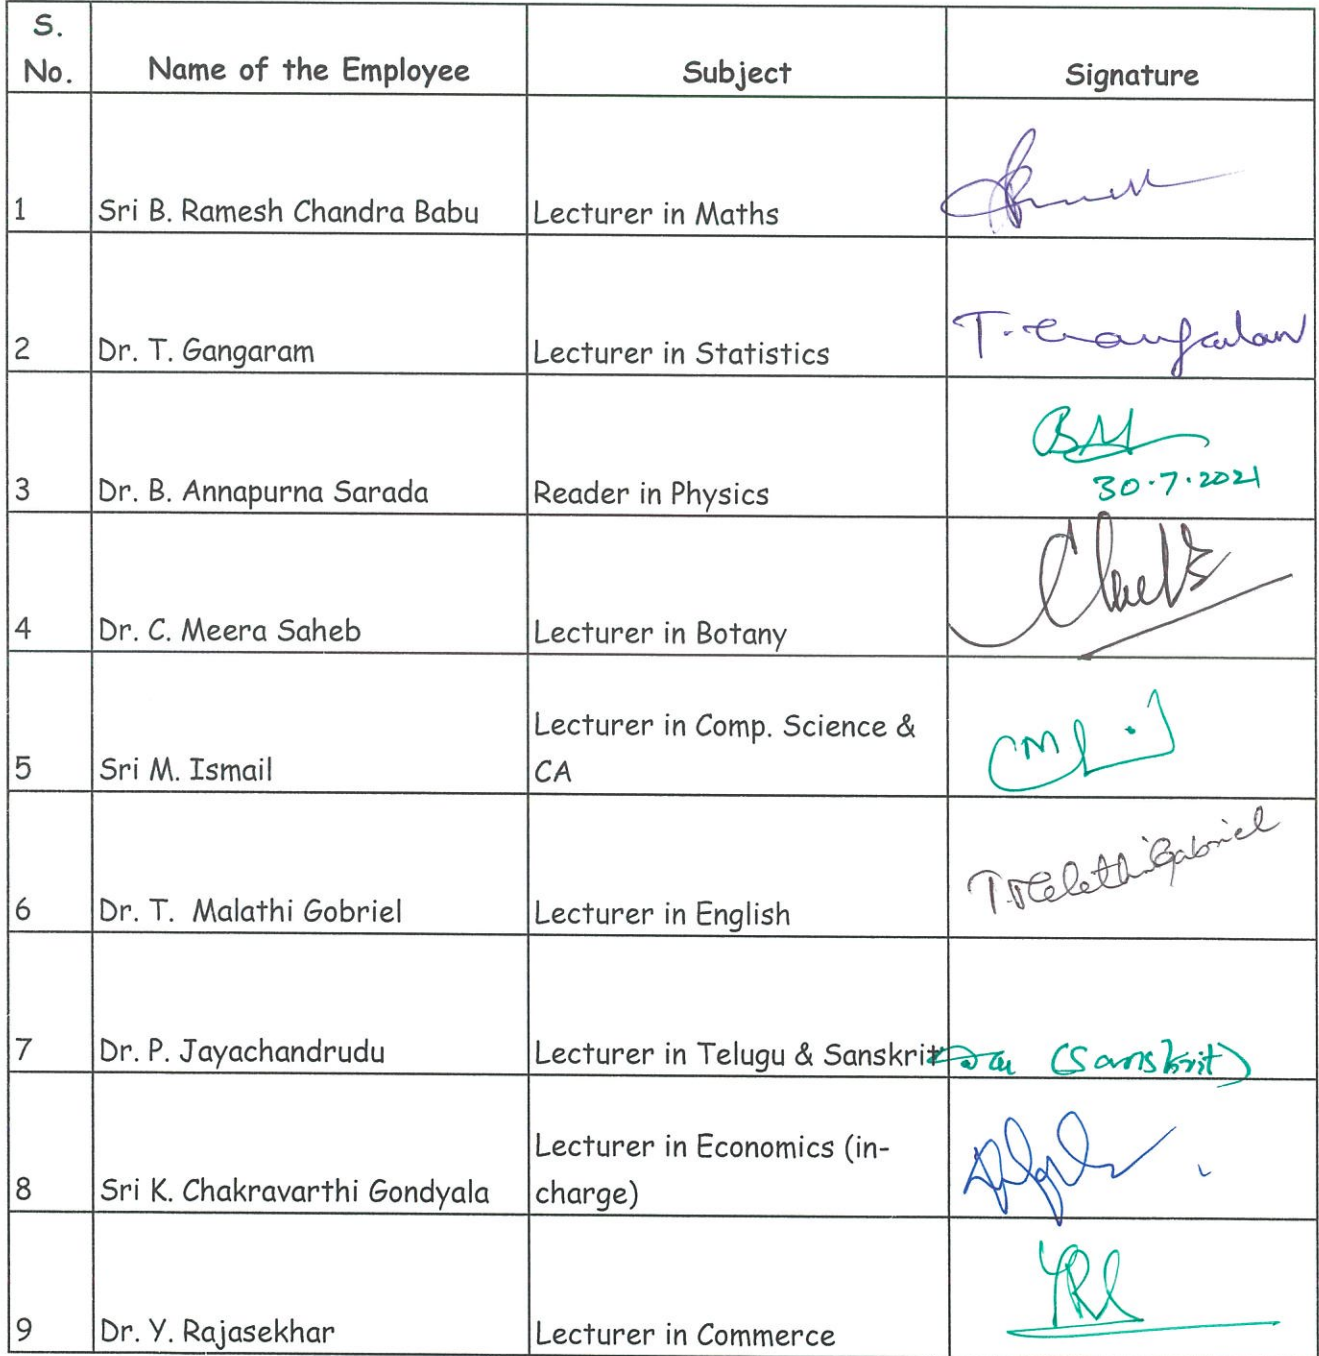 S.
No.
Name of the Employee
Subject
Signature
1
Sri B. Ramesh Chandra Babu
Lecturer in Maths
2
Dr. T. Gangaram
Lecturer in Statistics
3
Dr. B. Annapurna Sarada
Reader in Physics
30.7.2021
4
Dr. C. Meera Saheb
Lecturer in Botany
5
Sri M. Ismail
Lecturer in Comp. Science &
CA
6
Dr. T. Malathi Gobriel
Lecturer in English
T. Malathi Gabriel
7
Dr. P. Jayachandrudu
Lecturer in Telugu & Sanskrit
(Sanskrit)
8
Sri K. Chakravarthi Gondyala
Lecturer in Economics (in-
charge)
9
Dr. Y. Rajasekhar
Lecturer in Commerce